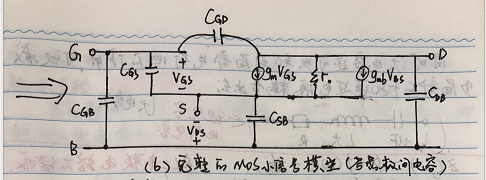 C_GD
G
D
C_GS
V_GS
g_m V_GS
r_o
g_mb V_BS
C_GB
S
V_BS
C_SB
C_DB
B
(b) 完整的MOS小信号模型(考虑极间电容)